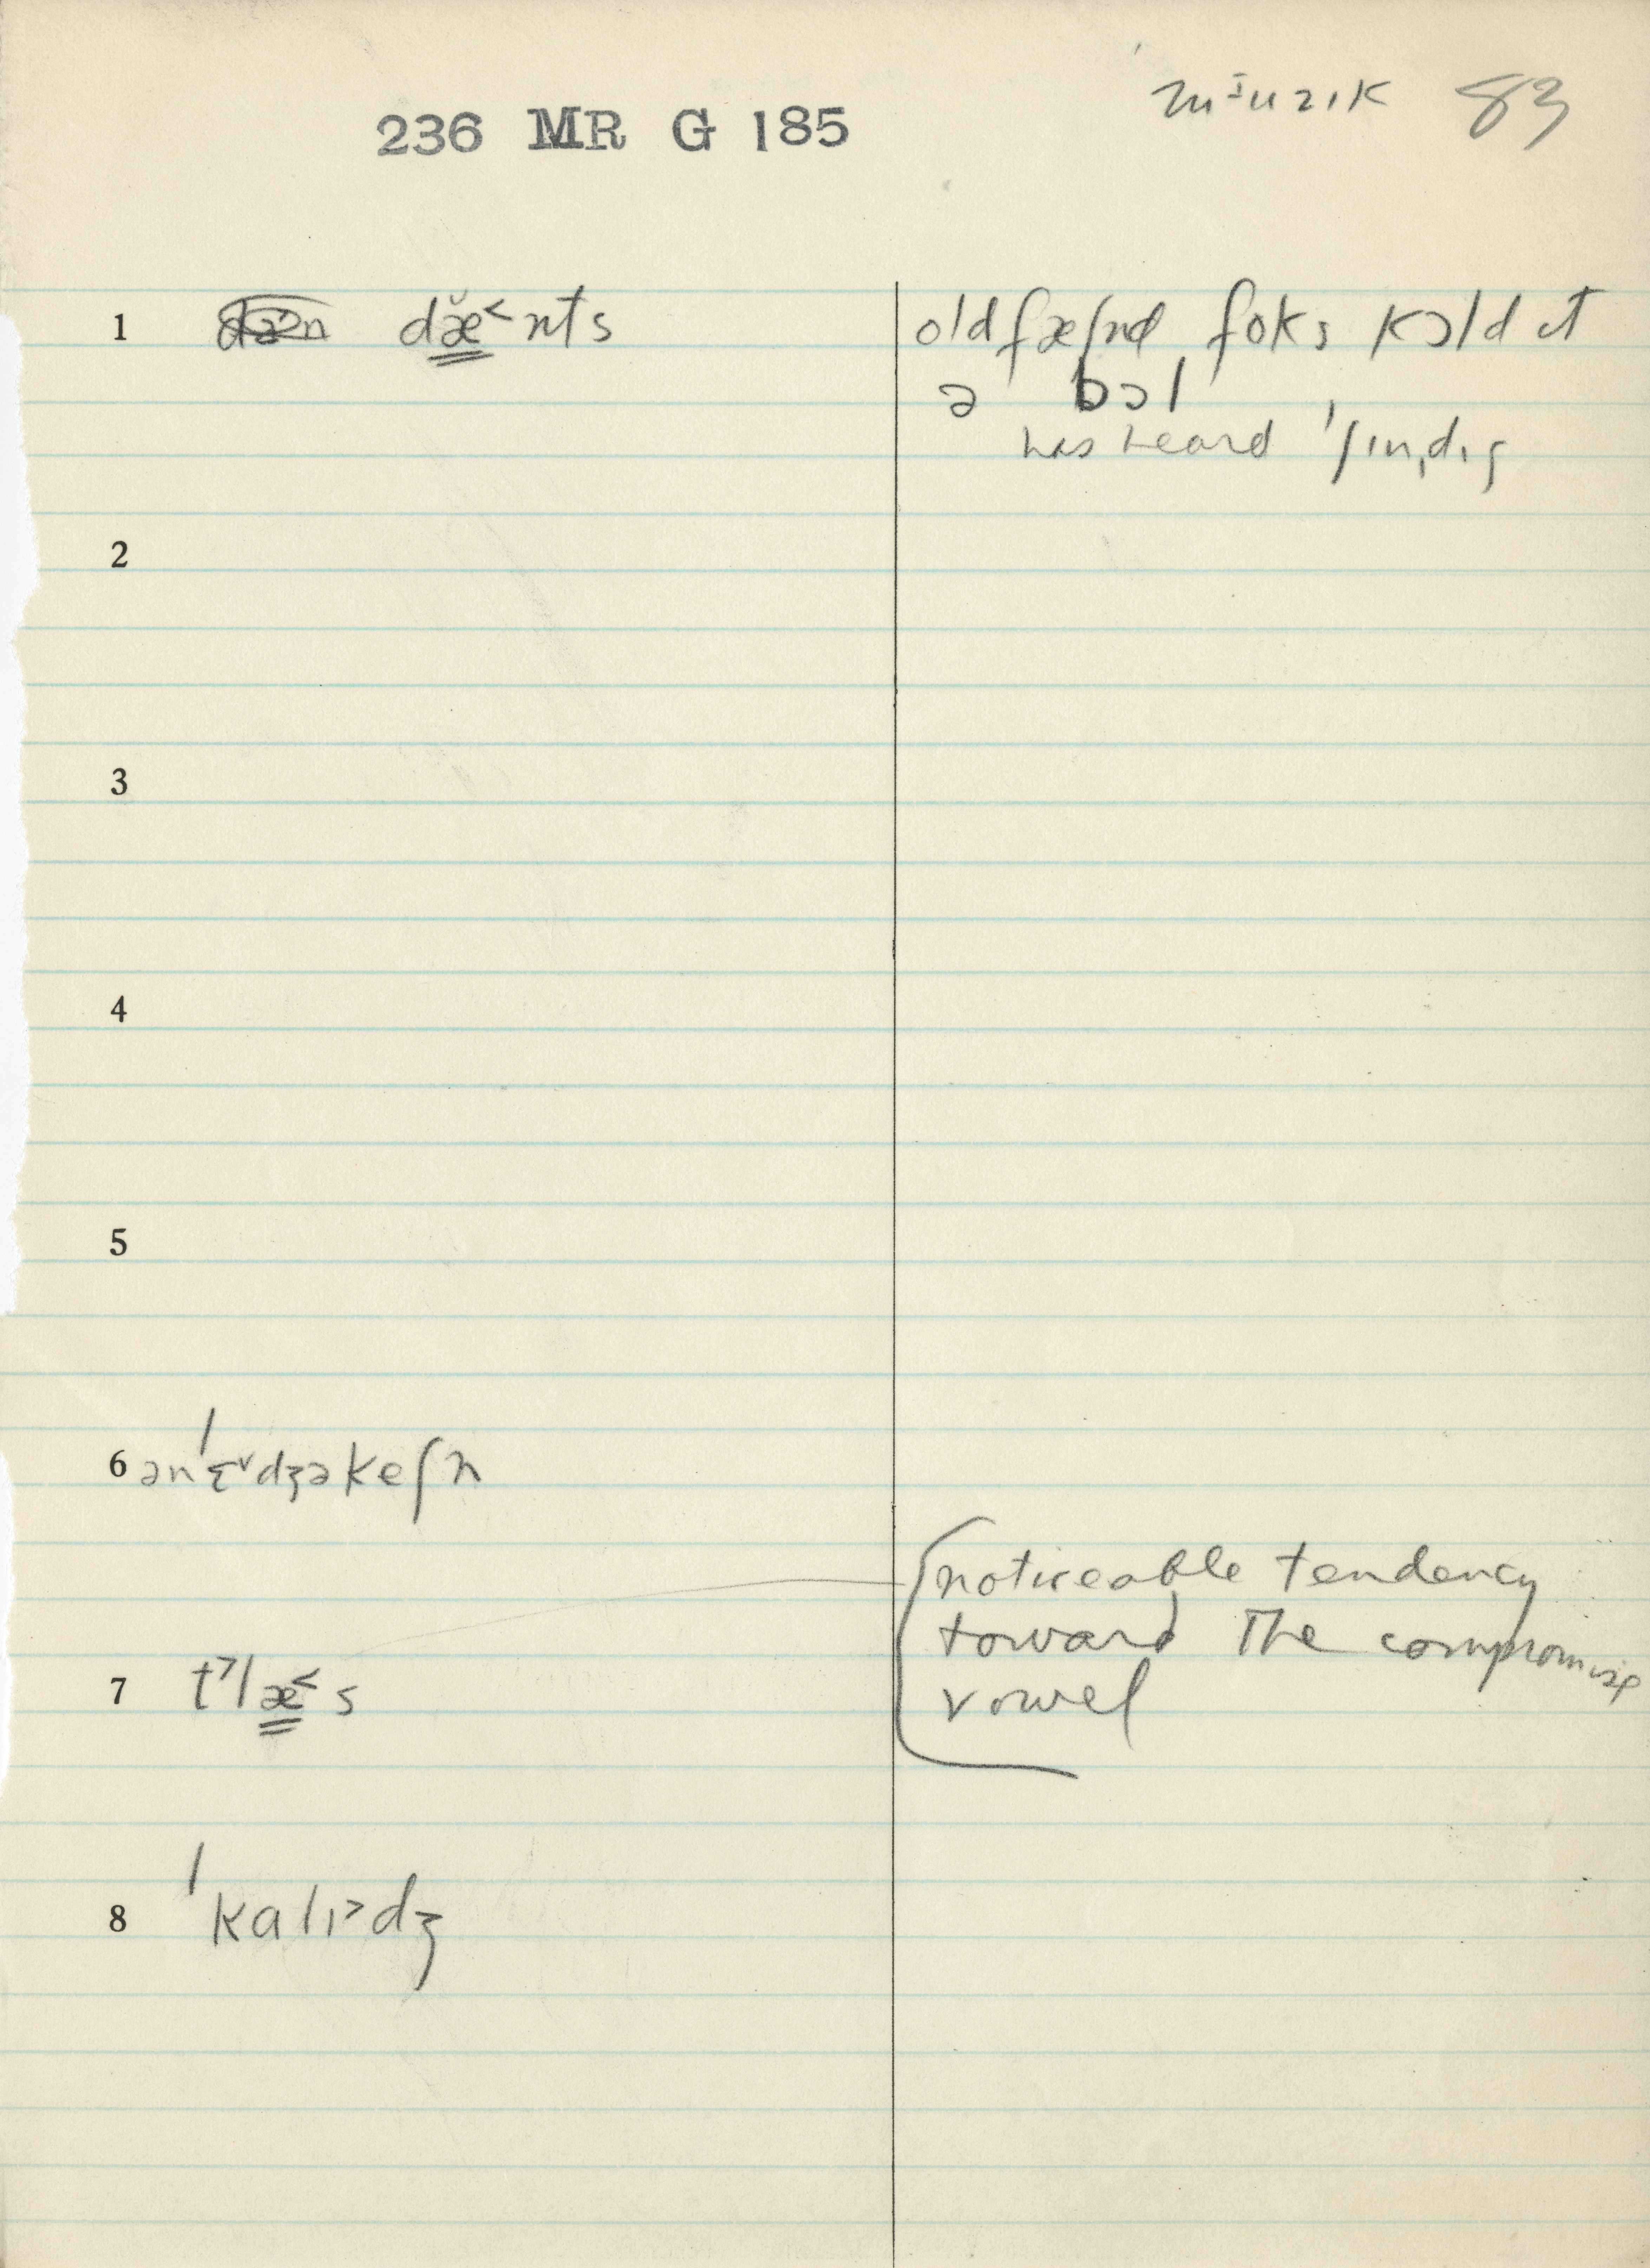 ˈmɪ̵uzɪk 83
236 MR G 185
1 dæ̆˂nts oldfæʃnd foks kɔld ɪt
ə bɔl
has heard ˈʃɪnˌdɪg
2
3
4
5
6 ənˈɛ˅dʒəkeʃn
noticeable tendency
toward the compromise
7 t˃læ˂s vowel
8 ˈkalɪ˃dʒ